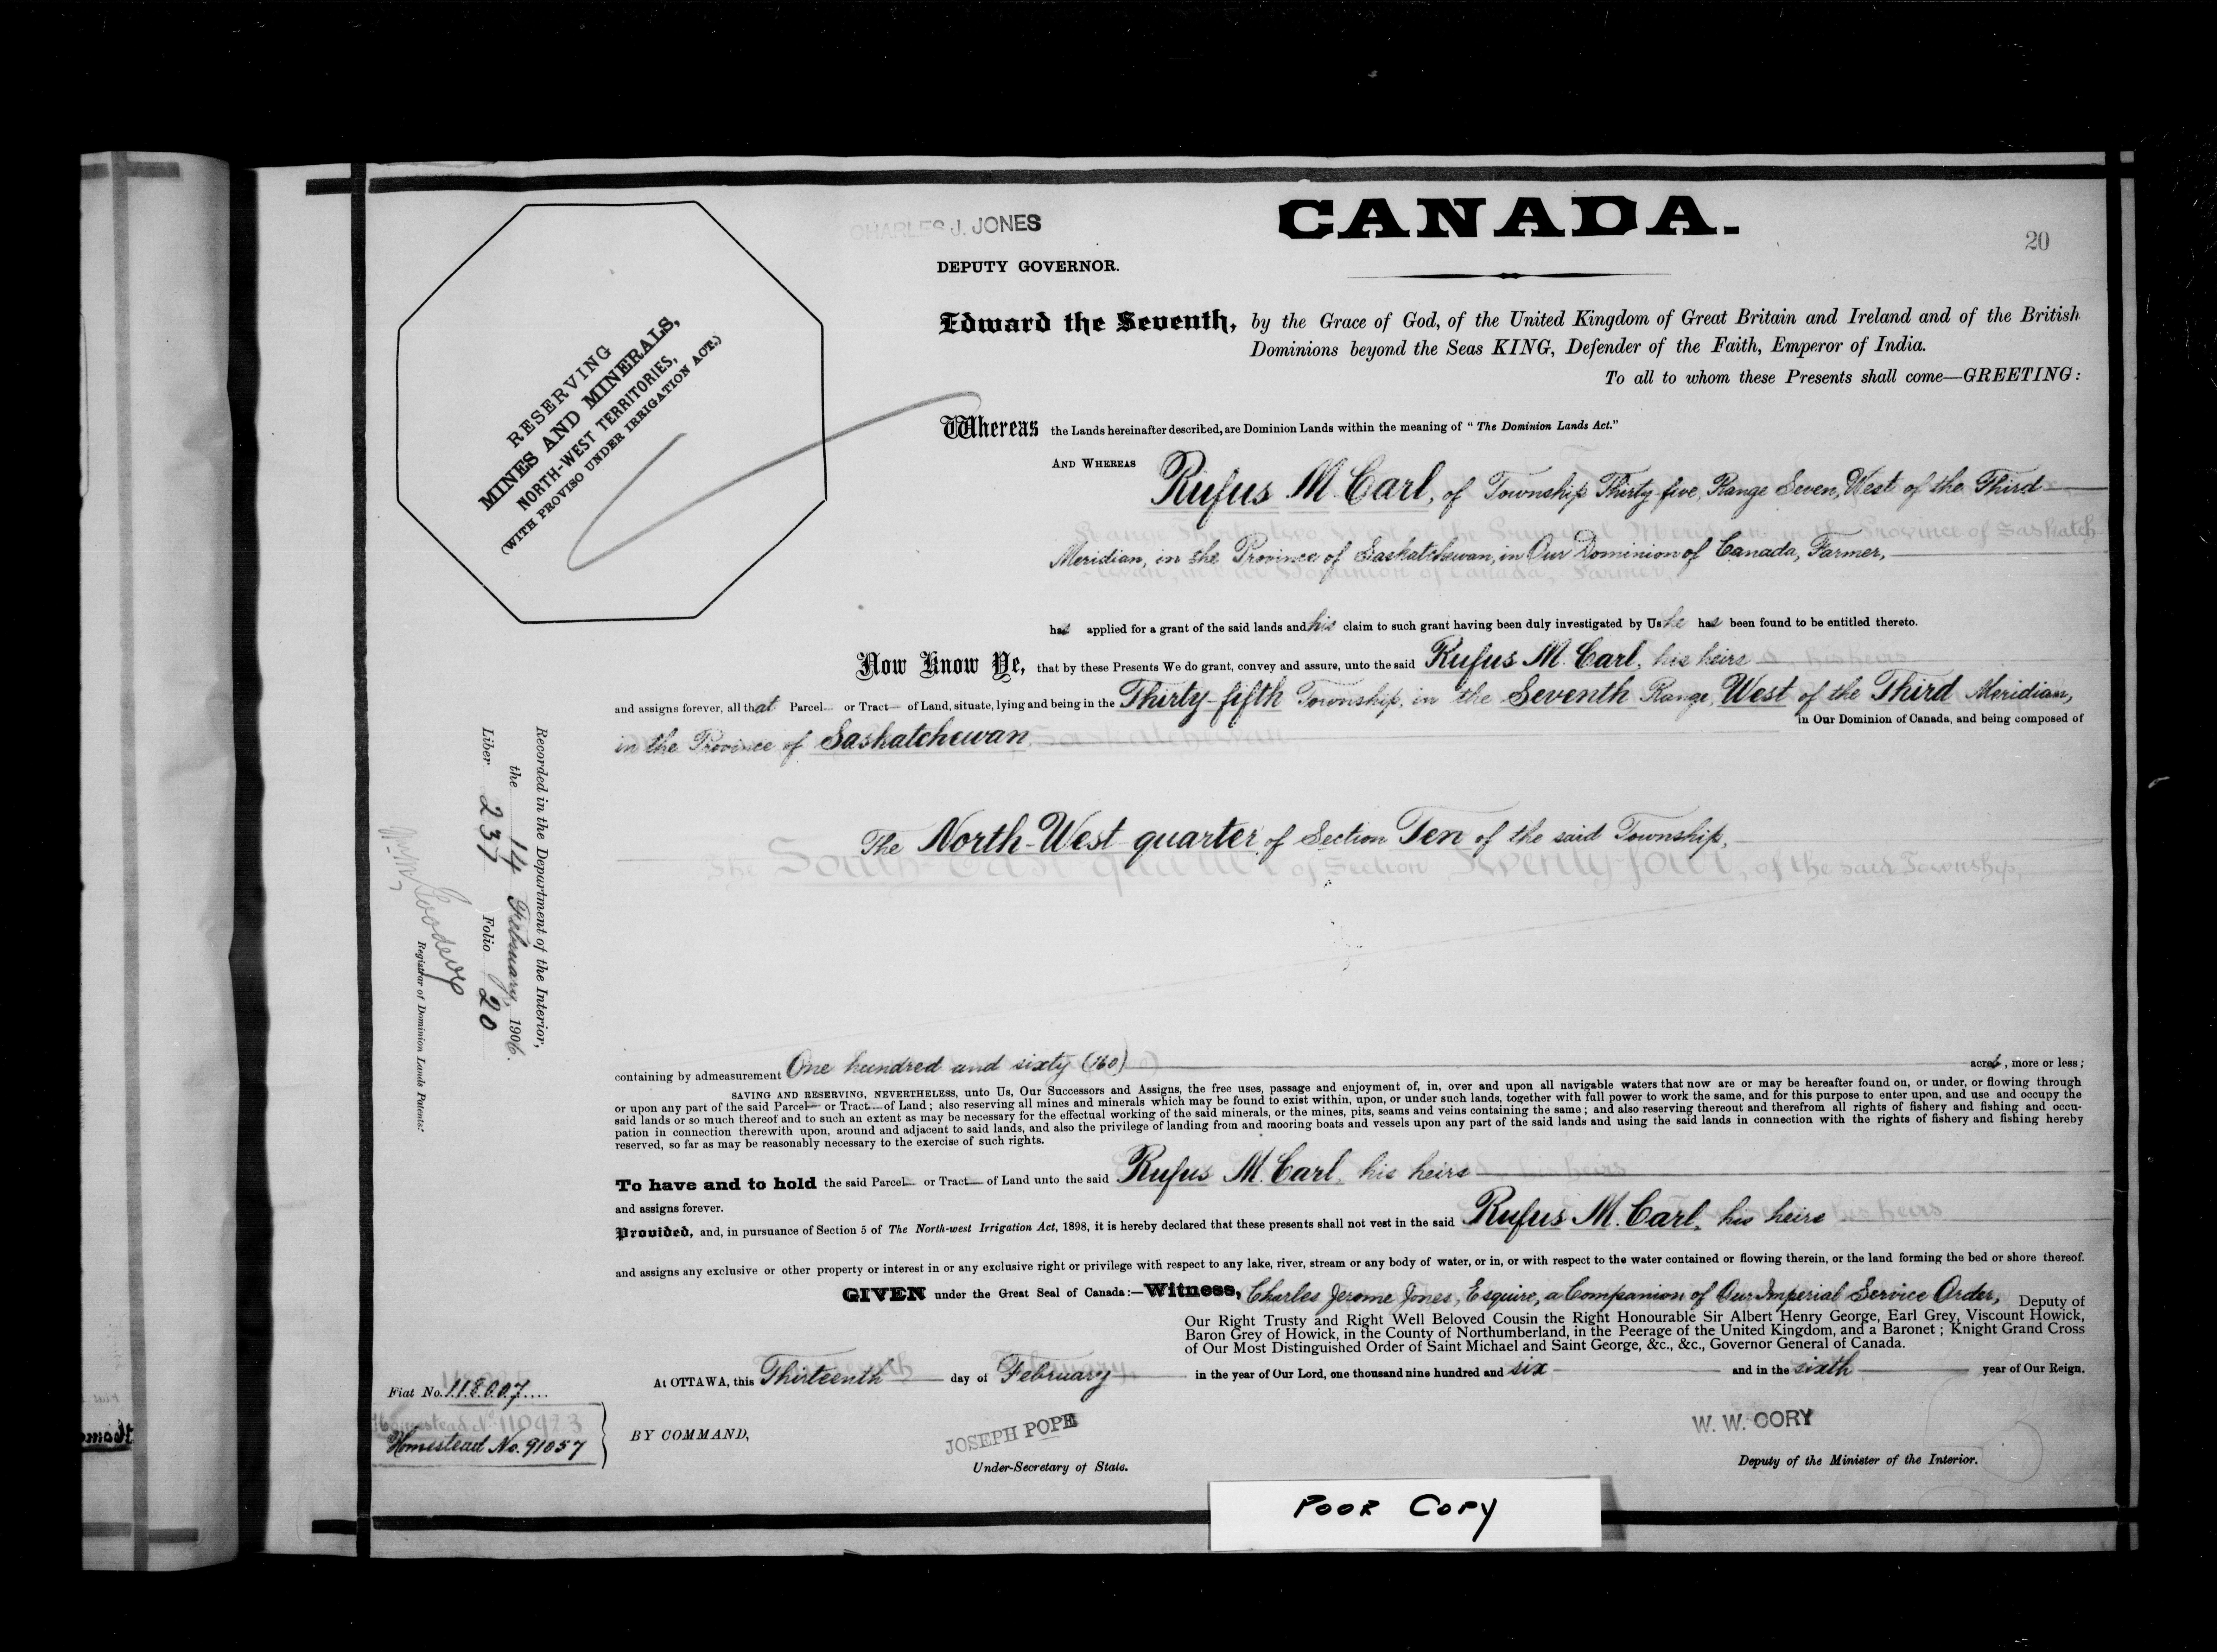 CHARLES J. JONES
CANADA.
20
DEPUTY GOVERNOR.
RESERVING
MINES AND MINERALS,
NORTH-WEST TERRITORIES,
(WITH PROVISO UNDER IRRIGATION ACT.)
Edward the Seventh, by the Grace of God, of the United Kingdom of Great Britain and Ireland and of the British
Dominions beyond the Seas KING, Defender of the Faith, Emperor of India.
To all to whom these Presents shall come—GREETING:
Whereas the Lands hereinafter described, are Dominion Lands within the meaning of "The Dominion Lands Act."
AND WHEREAS Rufus M. Carl, of Township Thirty-five, Range Seven, West of the Third
Meridian, in the Province of Saskatchewan, in Our Dominion of Canada, Farmer,
has applied for a grant of the said lands and his claim to such grant having been duly investigated by Us he has been found to be entitled thereto.
Now Know Ye, that by these Presents We do grant, convey and assure, unto the said Rufus M. Carl, his heirs
and assigns forever, all that Parcel or Tract of Land, situate, lying and being in the Thirty-fifth Township, in the Seventh Range, West of the Third Meridian,
in the Province of Saskatchewan, in Our Dominion of Canada, and being composed of
The North-West quarter of Section Ten of the said Township,
The South-East quarter of Section Twenty-four, of the said Township,
Recorded in the Department of the Interior,
the 14 February, 1906.
Liber 237 Folio 20
Registrar of Dominion Lands Patents.
containing by admeasurement One hundred and sixty (160) acres, more or less;
SAVING AND RESERVING, NEVERTHELESS, unto Us, Our Successors and Assigns, the free uses, passage and enjoyment of, in, over and upon all navigable waters that now are or may be hereafter found on, or under, or flowing through
or upon any part of the said Parcel or Tract of Land; also reserving all mines and minerals which may be found to exist within, upon, or under such lands, together with full power to work the same, and for this purpose to enter upon, and use and occupy the
said lands or so much thereof and to such an extent as may be necessary for the effectual working of the said minerals, or the mines, pits, seams and veins containing the same; and also reserving thereout and therefrom all rights of fishery and fishing and occu-
pation in connection therewith upon, around and adjacent to said lands, and also the privilege of landing from and mooring boats and vessels upon any part of the said lands and using the said lands in connection with the rights of fishery and fishing hereby
reserved, so far as may be reasonably necessary to the exercise of such rights.
To have and to hold the said Parcel or Tract of Land unto the said Rufus M. Carl, his heirs
and assigns forever.
Provided, and, in pursuance of Section 5 of The North-west Irrigation Act, 1898, it is hereby declared that these presents shall not vest in the said Rufus M. Carl, his heirs
and assigns any exclusive or other property or interest in or any exclusive right or privilege with respect to any lake, river, stream or any body of water, or in, or with respect to the water contained or flowing therein, or the land forming the bed or shore thereof.
GIVEN under the Great Seal of Canada:—Witness, Charles Jerome Jones, Esquire, a Companion of Our Imperial Service Order, Deputy of
Our Right Trusty and Right Well Beloved Cousin the Right Honourable Sir Albert Henry George, Earl Grey, Viscount Howick,
Baron Grey of Howick, in the County of Northumberland, in the Peerage of the United Kingdom, and a Baronet; Knight Grand Cross
of Our Most Distinguished Order of Saint Michael and Saint George, &c., &c., Governor General of Canada.
At OTTAWA, this Thirteenth day of February in the year of Our Lord, one thousand nine hundred and six and in the sixth year of Our Reign.
Fiat No. 118007
Homestead No. 110923
Homestead No. 91057
BY COMMAND,
JOSEPH POPE
Under-Secretary of State.
W. W. CORY
Deputy of the Minister of the Interior.
POOR COPY